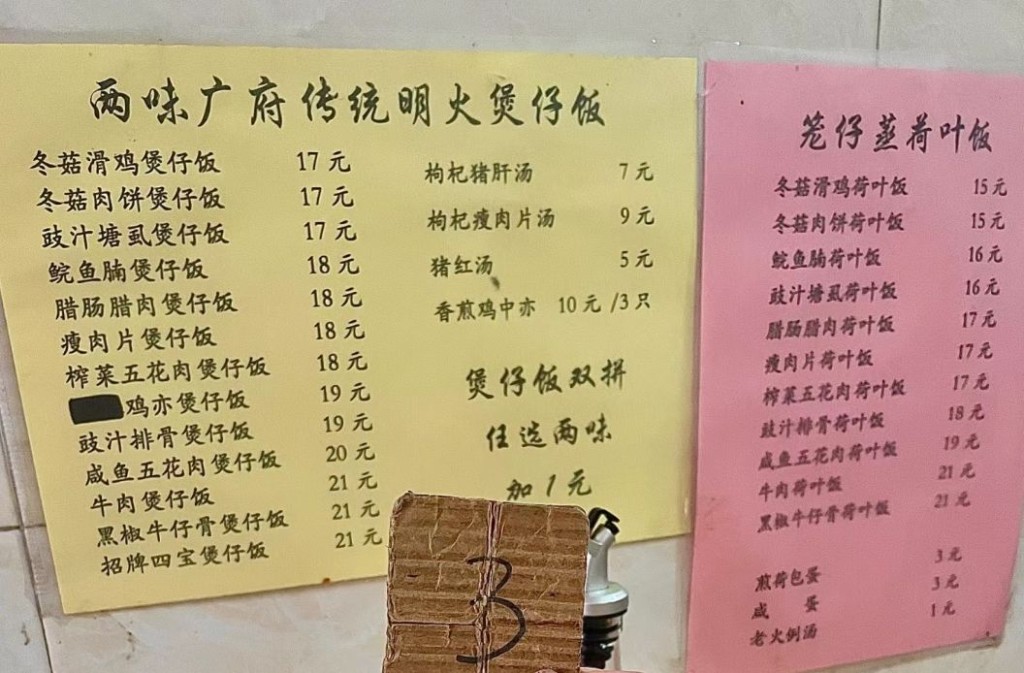 两味广府传统明火煲仔饭
冬菇滑鸡煲仔饭 17 元
冬菇肉饼煲仔饭 17 元
豉汁塘虱煲仔饭 17 元
鲩鱼腩煲仔饭 18 元
腊肠腊肉煲仔饭 18 元
瘦肉片煲仔饭 18 元
榨菜五花肉煲仔饭 18 元
鸡亦煲仔饭 19 元
豉汁排骨煲仔饭 19 元
咸鱼五花肉煲仔饭 20 元
牛肉煲仔饭 21 元
黑椒牛仔骨煲仔饭 21 元
招牌四宝煲仔饭 21 元
枸杞猪肝汤 7 元
枸杞瘦肉片汤 9 元
猪红汤 5 元
香煎鸡中亦 10 元 /3 只
煲仔饭双拼
任选两味
加 1 元
3
笼仔蒸荷叶饭
冬菇滑鸡荷叶饭 15 元
冬菇肉饼荷叶饭 15 元
鲩鱼腩荷叶饭 16 元
豉汁塘虱荷叶饭 16 元
腊肠腊肉荷叶饭 17 元
瘦肉片荷叶饭 17 元
榨菜五花肉荷叶饭 17 元
豉汁排骨荷叶饭 18 元
咸鱼五花肉荷叶饭 19 元
牛肉荷叶饭 21 元
黑椒牛仔骨荷叶饭 21 元
煎荷包蛋 3 元
咸 蛋 3 元
老火例汤 1 元